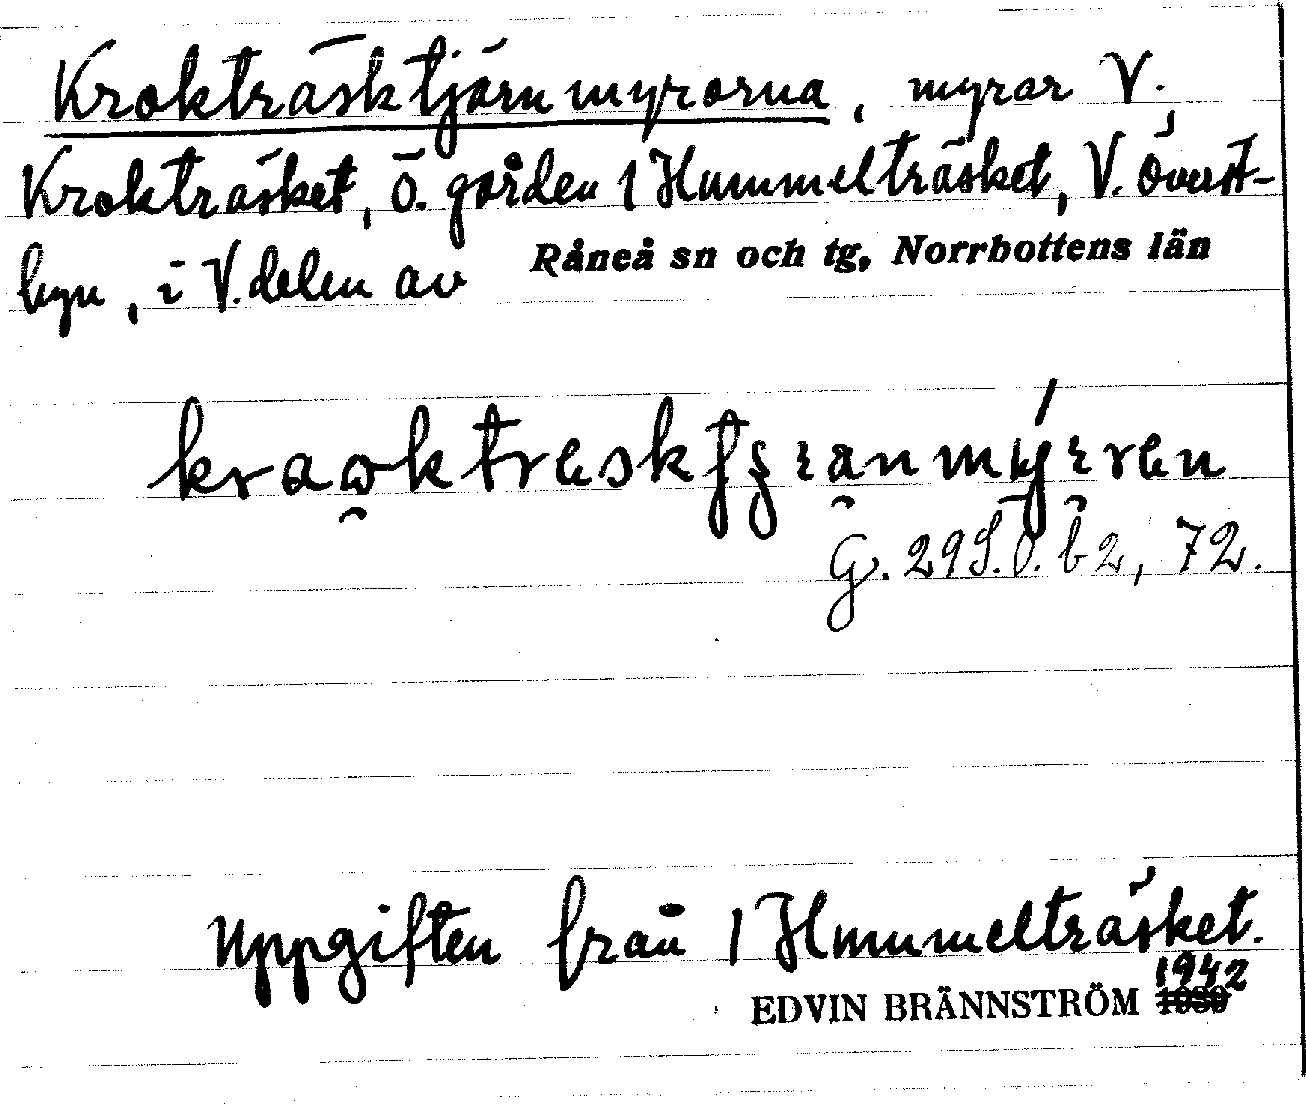 Krokträsktjärnmyrorna, myrar V.
Krokträsket, ö. gården 1 Hummelträsket, V. Överst-
byn, i V. delen av Råneå sn och tg, Norrbottens län
G. 29 S.Ö. b2, 72.
Uppgiften från 1 Hummelträsket.
EDVIN BRÄNNSTRÖM 1942